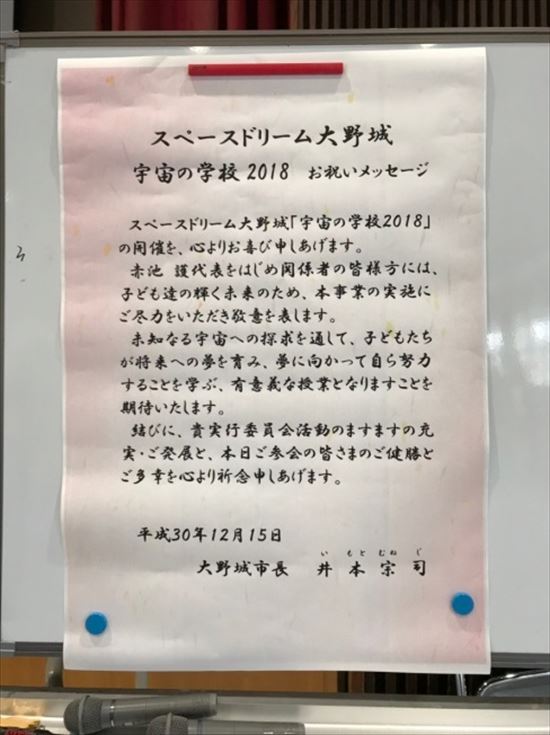 スペースドリーム大野城
宇宙の学校2018 お祝いメッセージ
スペースドリーム大野城「宇宙の学校2018」
の開催を、心よりお喜び申しあげます。
赤池 護代表をはじめ関係者の皆様方には、
子ども達の輝く未来のため、本事業の実施に
ご尽力をいただき敬意を表します。
未知なる宇宙への探求を通して、子どもたち
が将来への夢を育み、夢に向かって自ら努力
することを学ぶ、有意義な授業となりますことを
期待いたします。
結びに、貴実行委員会活動のますますの充
実・ご発展と、本日ご参会の皆さまのご健勝と
ご多幸を心より祈念申しあげます。
平成30年12月15日
い もと むね じ
大野城市長 井 本 宗 司